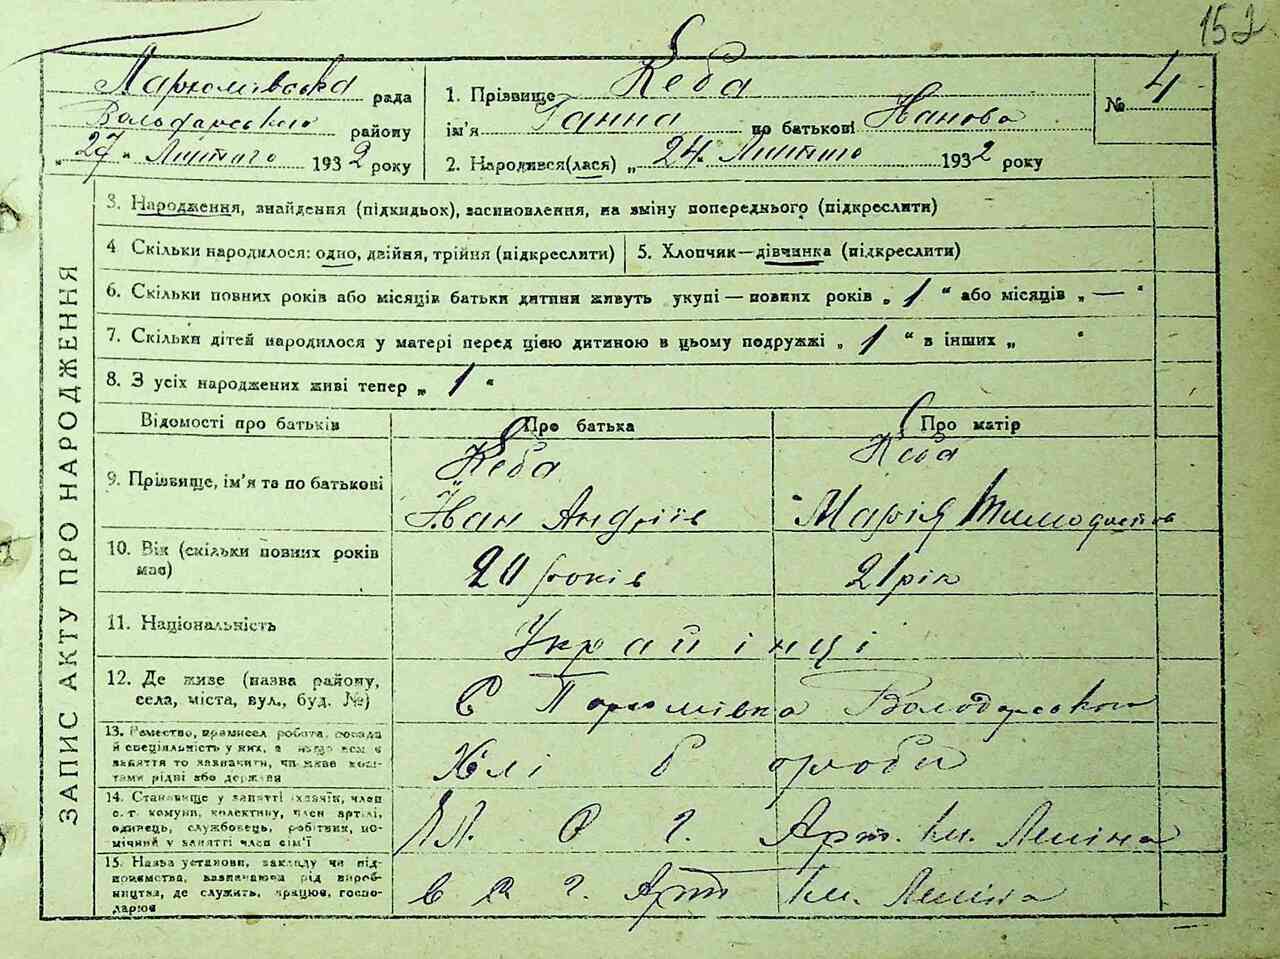 152
Пархомівська рада
Володарського району
„ 27 " Лютого 1932 року
1. Прізвище Кеба
ім'я Ганна по батькові Іванова
2. Народився(лася) „ 24 " Лютого 1932 року
№ 4
ЗАПИС АКТУ ПРО НАРОДЖЕННЯ
3. Народження, знайдення (підкидьок), засиновлення, на зміну попереднього (підкреслити)
4 Скільки народилося: одно, двійня, трійня (підкреслити)
5. Хлопчик—дівчинка (підкреслити)
6. Скільки повних років або місяців батьки дитини живуть укупі — повних років „ 1 " або місяців „ — "
7. Скільки дітей народилося у матері перед цією дитиною в цьому подружжі „ 1 " в інших „ "
8. З усіх народжених живі тепер „ 1 "
Відомості про батьків
Про батька
Про матір
9. Прізвище, ім'я та по батькові
Кеба
Іван Андріїв
Кеба
Марія Тимофієв
10. Вік (скільки повних років
має)
20 років
21 рік
11. Національність
Українці
12. Де живе (назва району,
села, міста, вул., буд. №)
С Пархомівка Володарського
13. Ремество, промисел робота, посада
й спеціяльність у них, а якщо нема
заняття то зазначити, чи живе кош-
тами рідні або держави
Хлібороби
14. Становище у занятті (хазяїн, член
с. т. комуни, колективу, член артілі,
одинець, службовець, робітник, по-
мічний у занятті член сім'ї
Арт. Ім. Леніна
15. Назва установи, закладу чи під-
приємства, зазначаючи рід вироб-
ництва, де служить, працює, госпо-
дарює
Арт Ім. Леніна